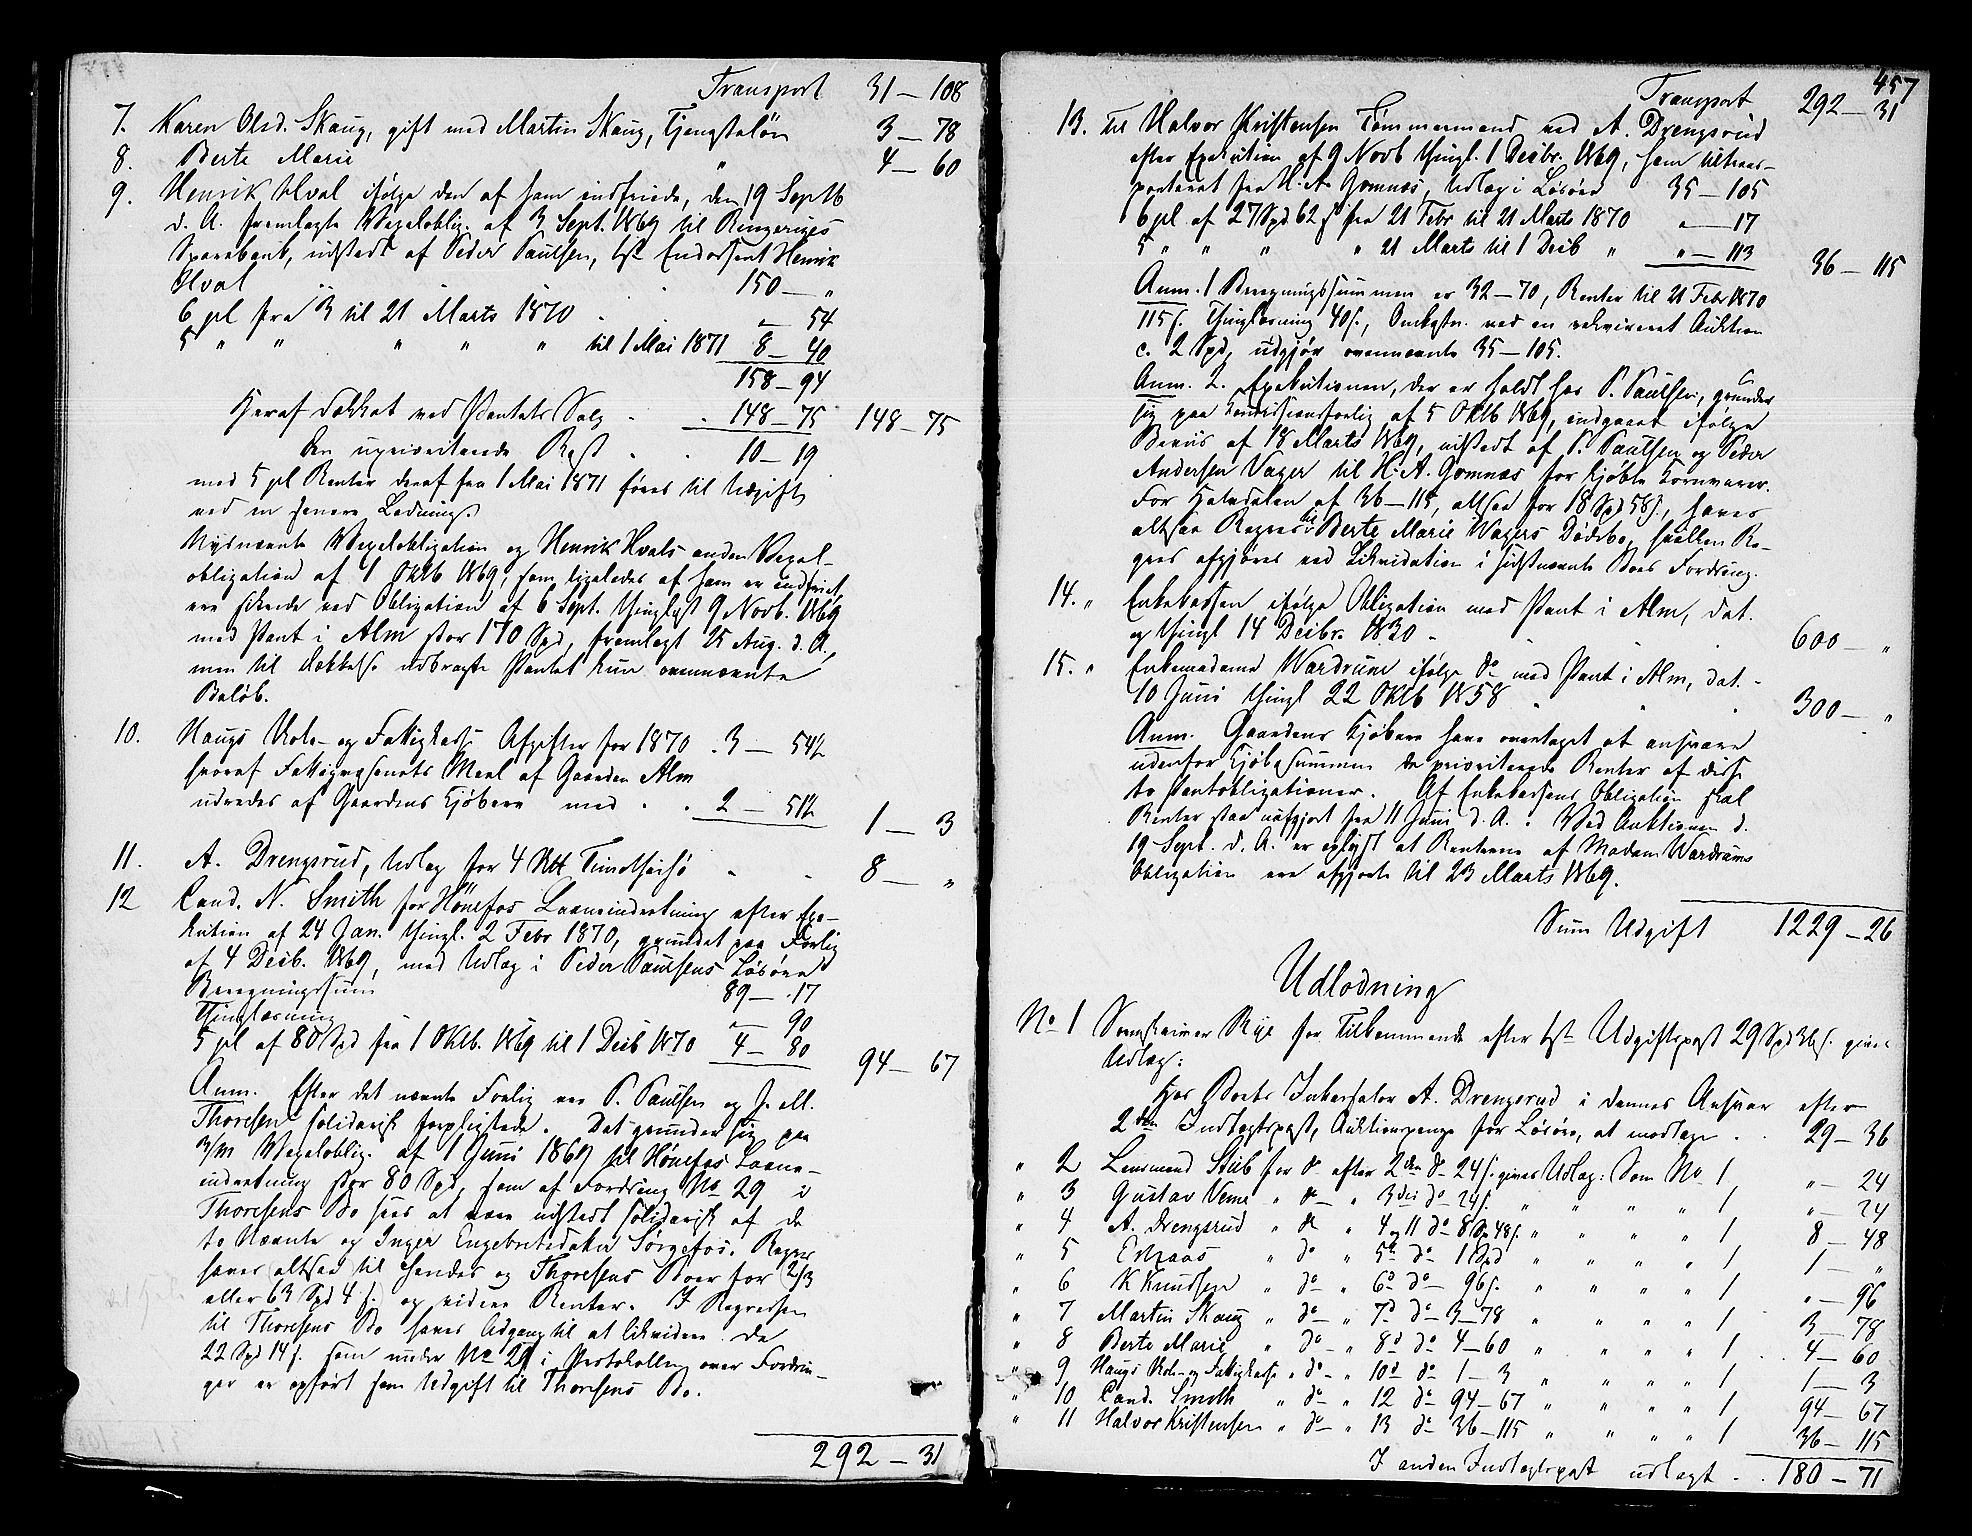 Transport 31 – 108
7. Karen Olsd. Skaug, gift med Martin Skaug, Tjenesteløn 3 – 78
8. Berte Marie " 4 – 60
9. Henrik Hval ifølge den af ham indfriede, den 19 Septb
d. A. fremlagte Vexeloblig. af 3 Sept. 1869 til Ringeriges
Sparebank, udstedt af Peder Paulsen, 1st Endossent Henrik
Hval 150 – "
6 pCt fra 3 til 21 Marts 1870 " – 54
5 " " " " " til 1 Mai 1871 8 – 40
158 – 94
Heraf dækket ved Pantets Salg 148 – 75 148 – 75
Den uprioriterede Rest 10 – 19
med 5 pCt Renter deraf fra 1 Mai 1871 føres til Udgift
ved en senere Lodning.
Nysnævnte Vexelobligation og Henrik Hvals anden Vexel-
obligation af 1 Oktb 1869, som ligeledes af ham er indfriet,
ere sikrede ved Obligation af 6 Sept. thinglyst 9 Novb. 1869
med Pant i Alm stor 170 Spd, fremlagt 25 Aug. d. A.,
men til Dækkelse udbragte Pantet kun ovennævnte
Beløb.
10. Haugs Skole- og Fattigkasse Afgifter for 1870 3 – 54½
hvoraf Fattigvæsenets Meel af Gaarden Alm
udredes af Gaardens Kjøbere med 2 – 51½ 1 – 3
11. A. Drengsrud, Udlæg for 4 Timotheihø 8 – "
12 Cand. N. Smith for Hønefos Laaneindretning efter Exe-
kution af 24 Jan. thingl. 2 Febr 1870, grundet paa Forlig
af 4 Decb. 1869, med Udlæg i Peder Paulsens Løsøre
Beregningssum 89 – 17
Thinglæsning " – 90
5 pCt af 80 Spd fra 1 Oktb. 1869 til 1 Decb 1870 4 – 80 94 – 67
Anm. Efter det nævnte Forlig ere P. Paulsen og
Thoresen solidarisk forpligtede. Det grunder sig paa
3/m Vexeloblig. af 1 Juni 1869 til Hønefos Laane-
indretning stor 80 Spd, som af Fordring No 29 i
Thoresens Bo sees at være udstedt solidarisk af de
to Nævnte og Inger Engebretsdatter Sørgefos. Regres
haves altsaa til hendes og Thoresens Boer for (2/3
eller 63 Spd 4 s.) og videre Renter. I Regressen
til Thoresens Bo haves Adgang til at likvidere de
22 Spd 14 s. som under No 29 i Protokollen over Fordrin-
ger er opført som Udgift til Thoresens Bo.
292 – 31
457
Transport 292 – 31
13. Til Halvor Kristensen Tømmermand ved A. Drengsrud
efter Exekution af 9 Novb thingl. 1 Decbr. 1869, som tiltrans-
porteret fra H. A. Gomnæs, Udlæg i Løsøre 35 – 105
6 pCt af 27 Spd 62 s fra 21 Febr til 21 Marts 1870 " – 17
5 " " " " 21 Marts til 1 Decb " " – 113 36 – 115
Anm. 1 Beregningssummen er 32 – 70, Renter til 21 Febr 1870
115 s. Thinglæsning 40 s., Omkostn. ved en rekvireret Auktion
c. 2 Spd, udgjør ovennævnte 35 – 105.
Anm. 2. Exekutionen, der er holdt hos P. Paulsen, grunder
sig paa Kommissionsforlig af 5 Oktb 1869, indgaaet ifølge
Beviis af 18 Marts 1869, udstedt af P. Paulsen og Peder
Andersen Vager til H. A. Gomnæs for kjøbte Kornvarer.
For Halvdelen af 36 – 115, altsaa for 18 Spd 58 s., haves
altsaa Regres til Berte Marie Vagers Dødsbo, hvilken Re-
gres afgjøres ved Likvidation i sidstnævnte Boes Fordring.
14. " Enkekassen ifølge Obligation med Pant i Alm, dat.
og thingl 14 Decbr. 1830 600 – "
15. " Enkemadame Wardrum ifølge do med Pant i Alm, dat.
10 Juni thingl 22 Oktb 1858 300 – "
Anm. Gaardens Kjøbere have overtaget at ansvare
udenfor Kjøbesummen de prioriterede Renter af disse
to Pantobligationer. Af Enkekassens Obligation skal
Renter staa uafgjort fra 11 Juni d. A. Ved Auktionen d.
19 Sept. d. A. er oplyst at Renterne af Madam Wardrums
Obligation ere afgjorte til 23 Marts 1869.
Sum Udgift 1229 – 26
Udlodning
No 1 Sorenskriver Rije for Tilkommende efter 1st Udgiftspost 29 Spd 36 s. gives
Udlæg:
Hos Boets Inkassator A. Drengsrud i dennes Ansvar efter
2den Indtægtspost, Auktionspenge for Løsøre, at modtage 29 – 36
" 2 Lensmand Stub for do efter 2den do 24 s. gives Udlæg: Som No 1 " – 24
" 3 Gustav Veme " do " 3die do 24 s. " " " " 1 " – 24
" 4 A. Drengsrud " do " 4 og 11 do 8 Sp 48 s. " " " " 1 8 – 48
" 5 " do " 5te do 1 Spd " " " " 1 1 – "
" 6 K Knudsen " do " 6te do 96 s. " " " " 1 " – 96
" 7 Martin Skaug " do " 7d do 3 – 78 " " " " 1 3 – 78
" 8 Berte Marie " do " 8d do 4 – 60 " " " " 1 4 – 60
" 9 Haugs Skole- og Fattigkasse " do " 10d do 1 – 3 " " " " 1 1 – 3
" 10 Cand. Smith " do " 12 do 94 – 67 " " " " 1 94 – 67
" 11 Halvor Kristensen " do " 13 do 36 – 115 " " " " 1 36 – 115
I anden Indtægtspost udlagt 180 – 71